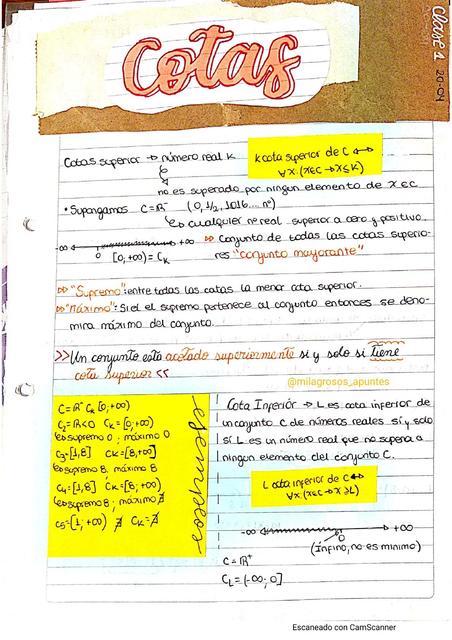 Cotas
Clase 1 20-04
Cotas superior → número real K
no es superado por ningun elemento de x ∈ C
K cota superior de C ↔
∀x: (x∈C → x≤K)
• Supongamos C = R⁻ (0, 1/2, 1016... n°)
↳ cualquier n° real superior a cero y positivo.
-∞ +∞
0 [0, +∞) = Cₖ
▷▷ Conjunto de todas las cotas superio-
res "conjunto mayorante"
▷▷ "Supremo": entre todas las cotas la menor cota superior.
▷▷ "Máximo": Si el supremo pertenece al conjunto entonces se deno-
mira máximo del conjunto.
>> Un conjunto está acotado superiormente si y solo si tiene
cota superior <<
@milagrosos_apuntes
C = R⁻ Cₖ [0, +∞)
C₂ = R<0 Cₖ = [0; +∞)
↳ supremo 0; máximo 0
C₃ = [1,8] Cₖ = [8, +∞)
↳ supremo 8. máximo 8
C₄ = [1,8] Cₖ = [8; +∞)
↳ supremo 8; máximo ∄
C₅ = [1; +∞) ∄ Cₖ = ∄
ejemplos
Cota Inferior → L es cota inferior de
un conjunto C de números reales sí y solo
sí L es un número real que no supera a
ningun elemento del conjunto C.
L cota inferior de C ↔
∀x: (x∈C → x ≥ L)
-∞ +∞
0
(ínfimo, no es minimo)
C = R⁺
C_L = (-∞; 0]
Escaneado con CamScanner